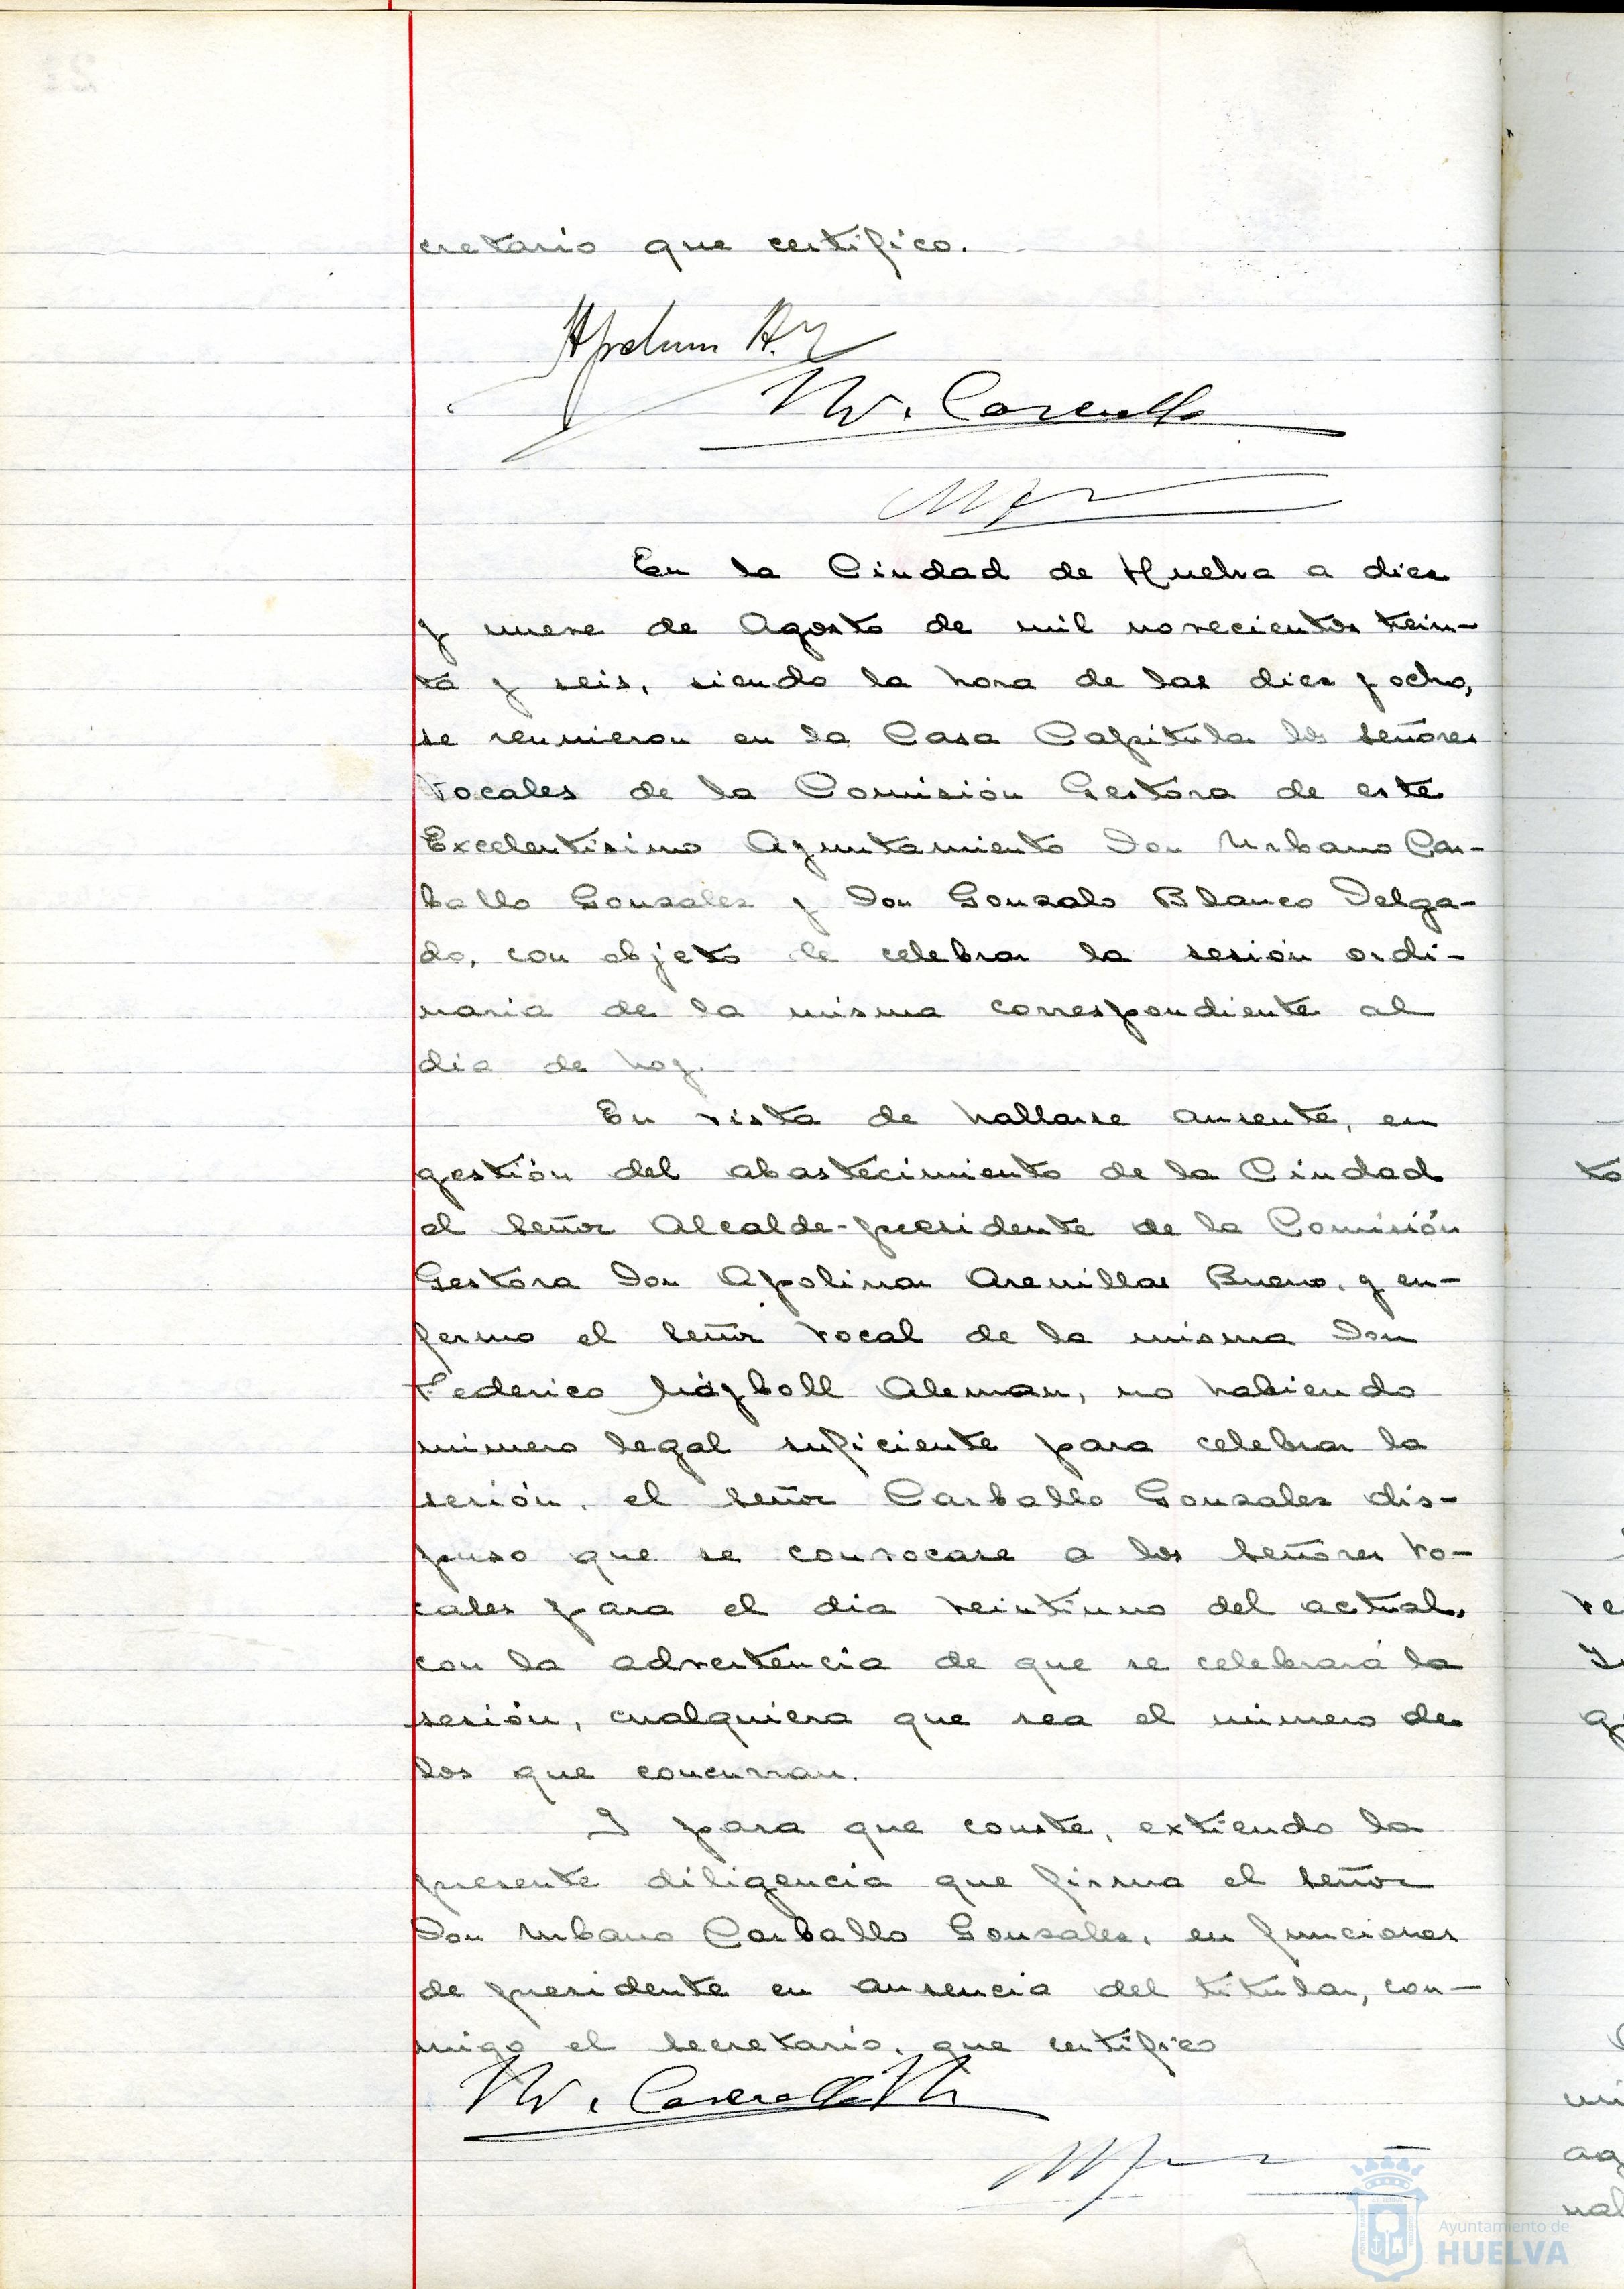 cretario que certifico.
En la Ciudad de Huelva a diez
y nueve de Agosto de mil novecientos trein-
ta y seis, siendo la hora de las diez y ocho,
se reunieron en la Casa Capitular los señores
Vocales de la Comisión Gestora de este
Excelentísimo Ayuntamiento Don Urbano Car-
ballo Gonzalez y Don Gonzalo Blanco Delga-
do, con objeto de celebrar la sesión ordi-
naria de la misma correspondiente al
día de hoy.
En vista de hallarse ausente, en
gestión del abastecimiento de la Ciudad
el señor Alcalde-presidente de la Comisión
Gestora Don Apolinar Arenillas Bueno, y en-
fermo el señor Vocal de la misma Don
Federico Alemán, no habiendo
número legal suficiente para celebrar la
sesión, el señor Carballo Gonzalez dis-
puso que se convocase a los señores Vo-
cales para el día veintiuno del actual,
con la advertencia de que se celebrará la
sesión, cualquiera que sea el número de
los que concurran.
Y para que conste, extiendo la
presente diligencia que firma el señor
Don Urbano Carballo Gonzalez, en funciones
de presidente en ausencia del titular, con-
migo el secretario, que certifico
Ayuntamiento de
HUELVA